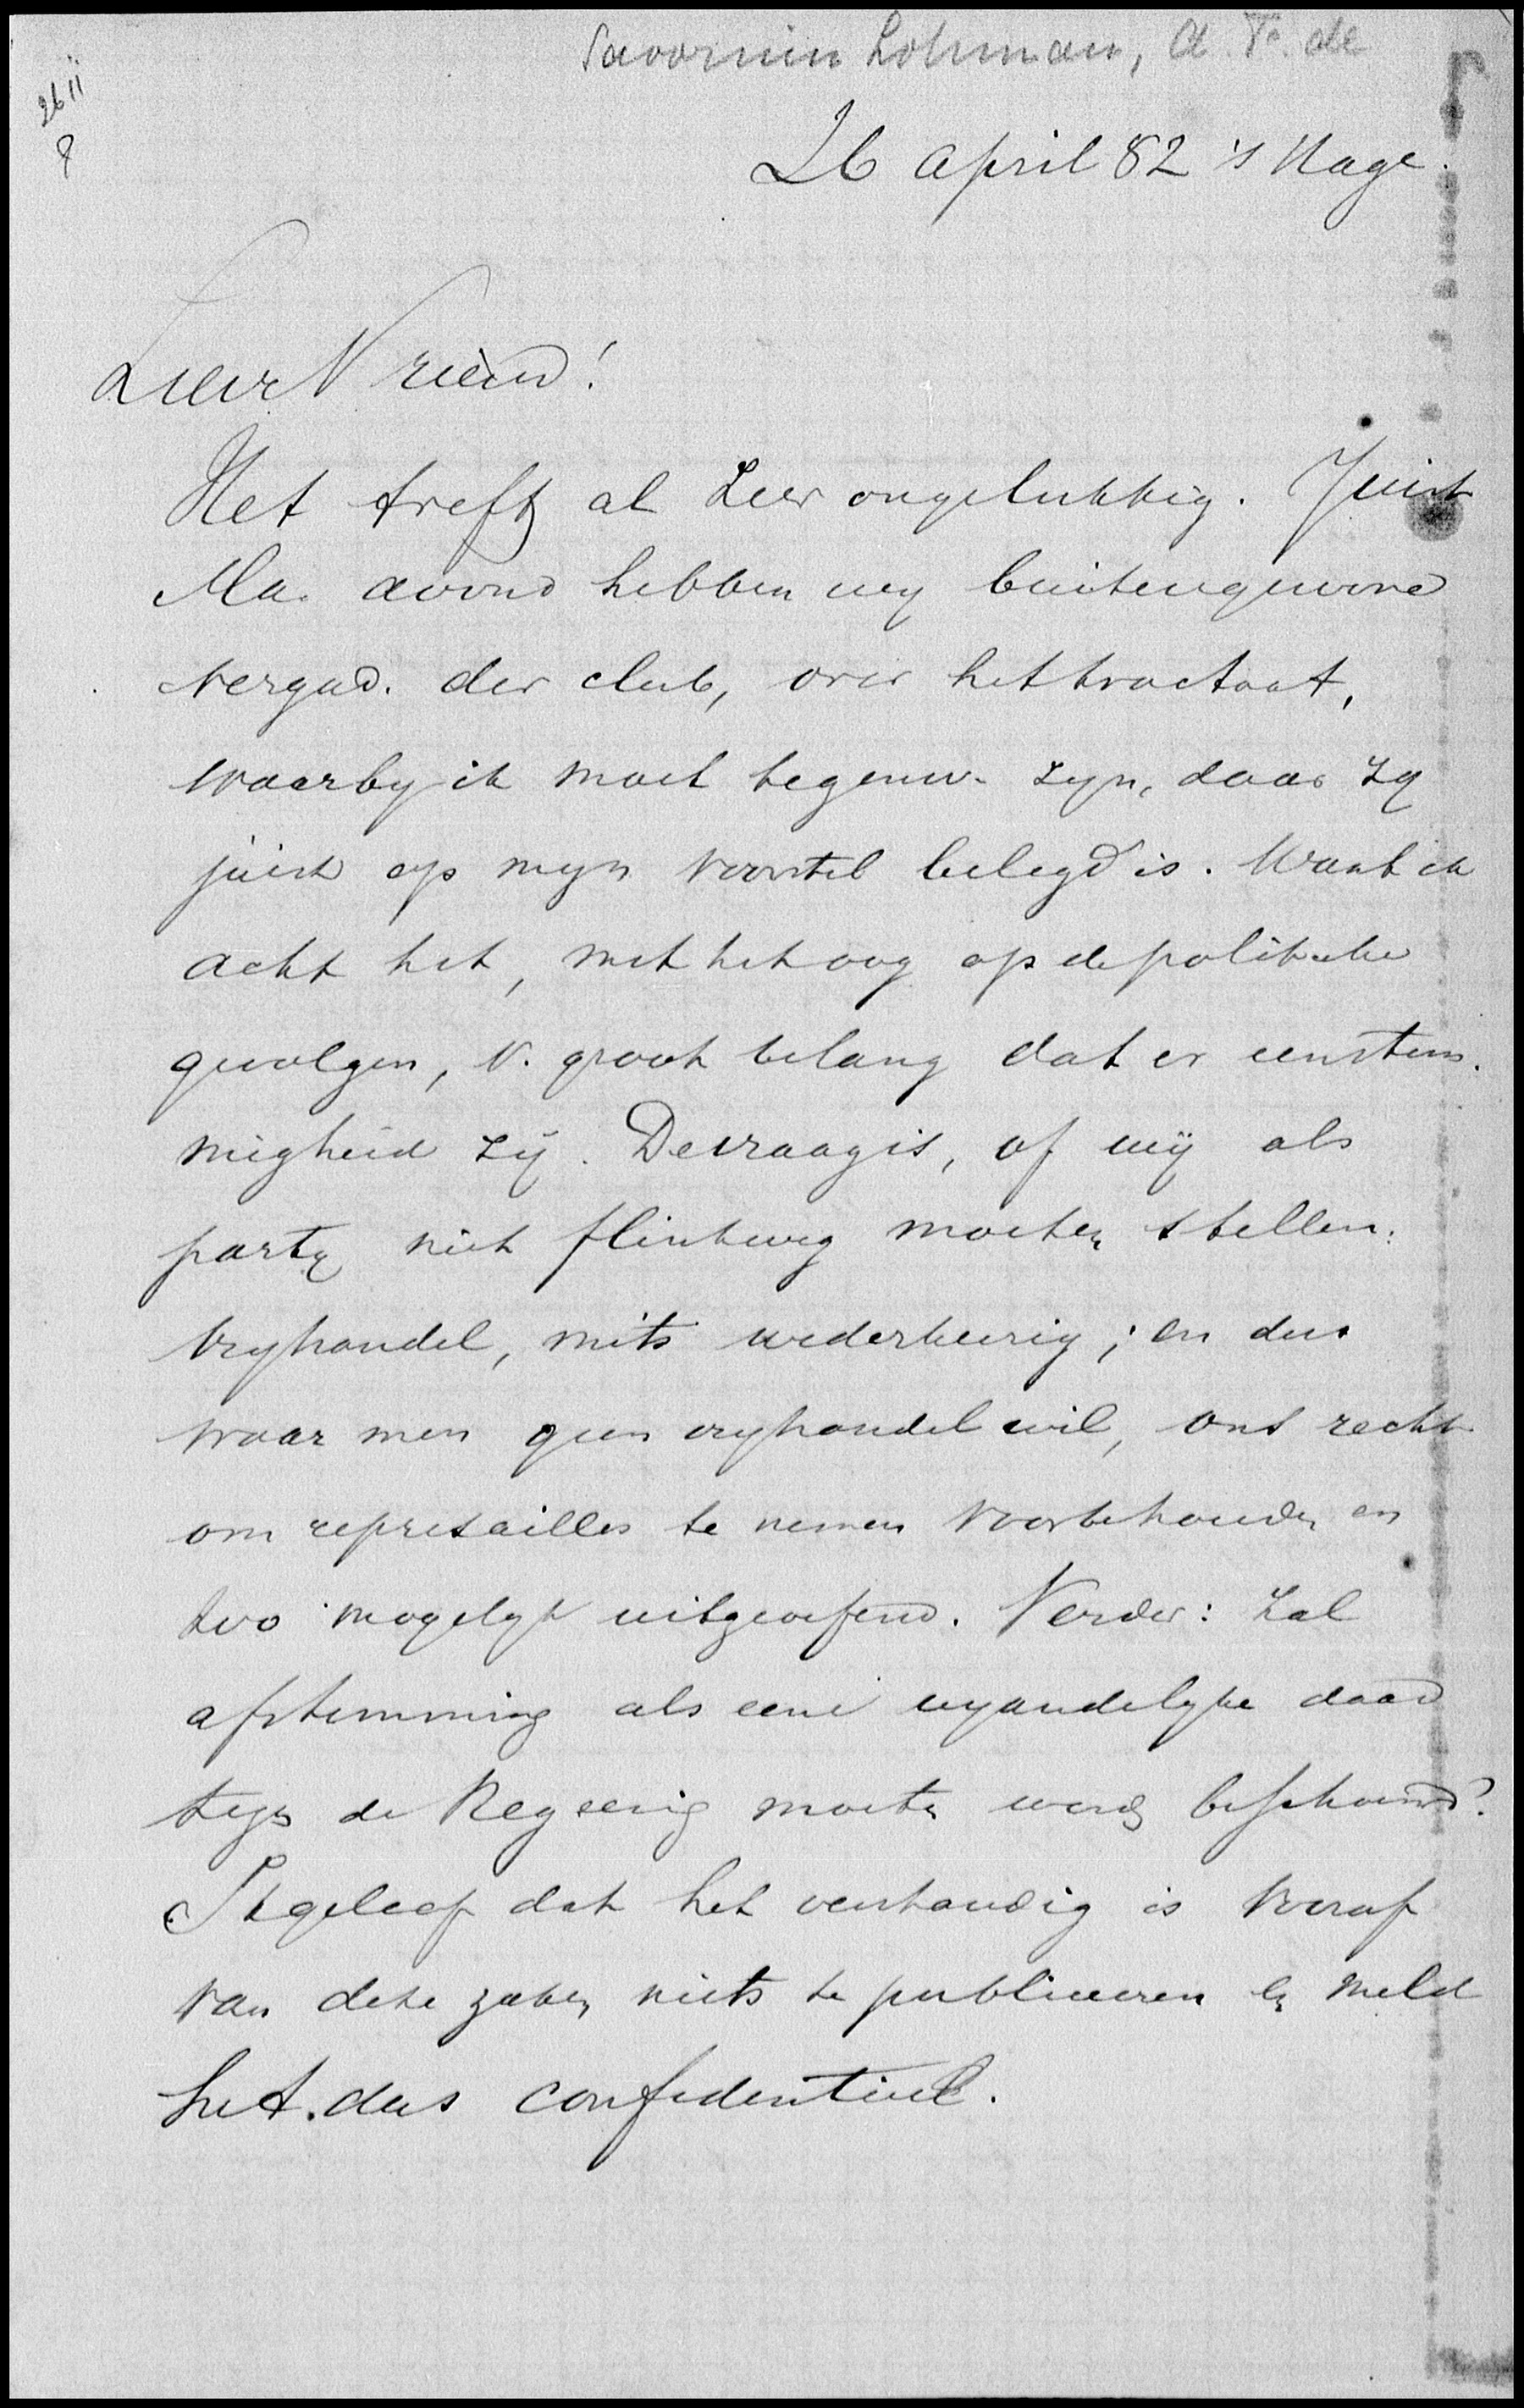 Savornin Lohman, A. F. de
2611
8
26 April 82 's Hage.
Lieve Vriend!
Het treft al zeer ongelukkig. Juist
Ma. avond hebben wy buitengewone
vergad. der club, over het tractaat,
waarby ik moet tegenw. zyn, daar zy
juist op myn voorstel belegd is. Want ik
acht het, met het oog op de politieke
gevolgen, v. groot belang dat er eenstem-
migheid zij. De vraag is, of wij als
party niet flinkweg moeten stellen:
vryhandel, mits wederkeerig; en dus
waar men geen vryhandel wil, ons recht
om represailles te nemen voorbehouden en
zoo mogelyk uitgeoefend. Verder: zal
afstemming als eene vyandelyke daad
tegen de Regeering moeten word. beschouwd?
Ik geloof dat het verstandig is vooraf
van deze zaken niets te publiceeren en meld
het dus confidentieel.